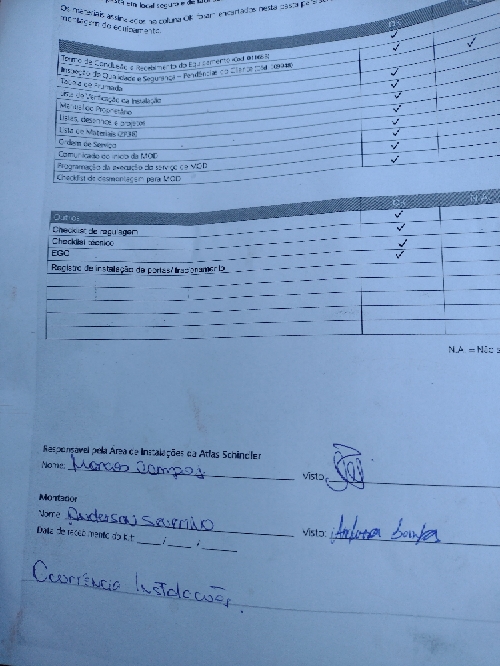 Os materiais assinalados na coluna OK foram encartados nesta pasta para
montagem do equipamento.
OK
Termo de Conclusão e Recebimento do Equipamento
Inspeção de Qualidade e Segurança - Pendências do Cliente
Tabela de Prumada
Lista de Verificação da Instalação
Manual do Proprietário
Listas, desenhos e projetos
Lista de Materiais (ZP38)
Ordem de Serviço
Comunicado de início da MOD
Programação da execução do serviço de MOD
Checklist de desmontagem para MOD
Outros OK N.A.
Checklist de regulagem
Checklist técnico
EGC
Registro de instalação de portas/fracionamento
N.A. = Não
Responsável pela Área de Instalações da Atlas Schindler
Nome: Marcos Campos Visto:
Montador
Nome: Anderson Visto:
Data de recebimento do Kit: / /
Ocorrência Instalações.